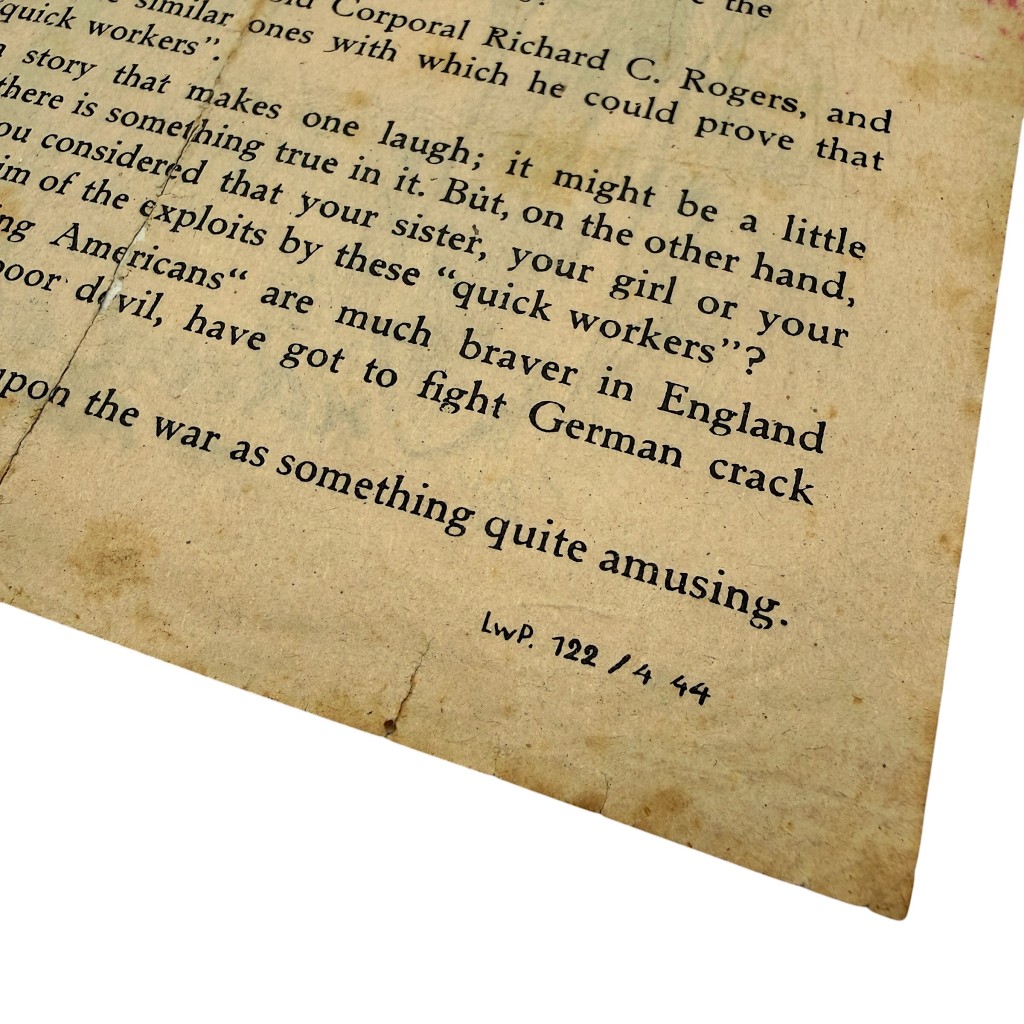 the
Corporal Richard C. Rogers, and
similar ones with which he could prove that
quick workers”.
story that makes one laugh; it might be a little
there is something true in it. But, on the other hand,
considered that your sister, your girl or your
of the exploits by these “quick workers”?
Americans“ are much braver in England
devil, have got to fight German crack
upon the war as something quite amusing.
LwP. 122 / 4 44